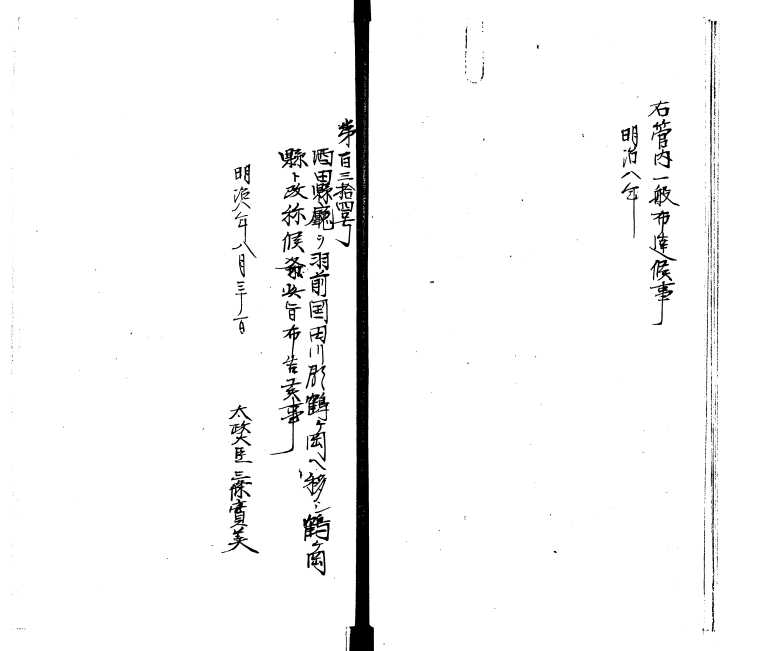 右管内一般布達候事
明治八年
第百三拾四号
酒田縣廳ヲ羽前国田川郡鶴ヶ岡ヘ移シ鶴ヶ岡
縣ト改称候條此旨布告候事
明治八年八月三十一日
太政大臣三條實美